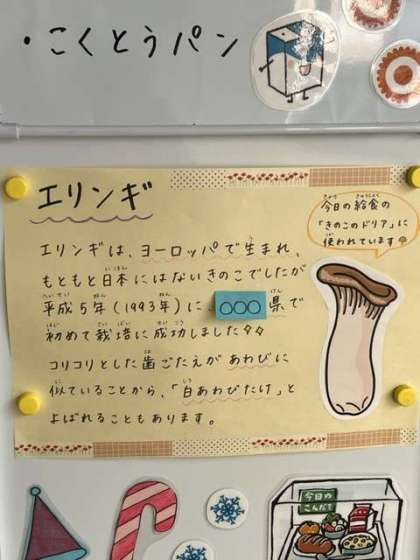 ・こくとうパン
エリンギ
今日の給食の
「きのこのドリア」に
使われています
エリンギは、ヨーロッパで生まれ、
もともと日本にはないきのこでしたが
平成5年(1993年)に ○○○ 県で
初めて栽培に成功しました
コリコリとした歯ごたえがあわびに
似ていることから、「白あわびたけ」と
よばれることもあります。
今日の
こんだて